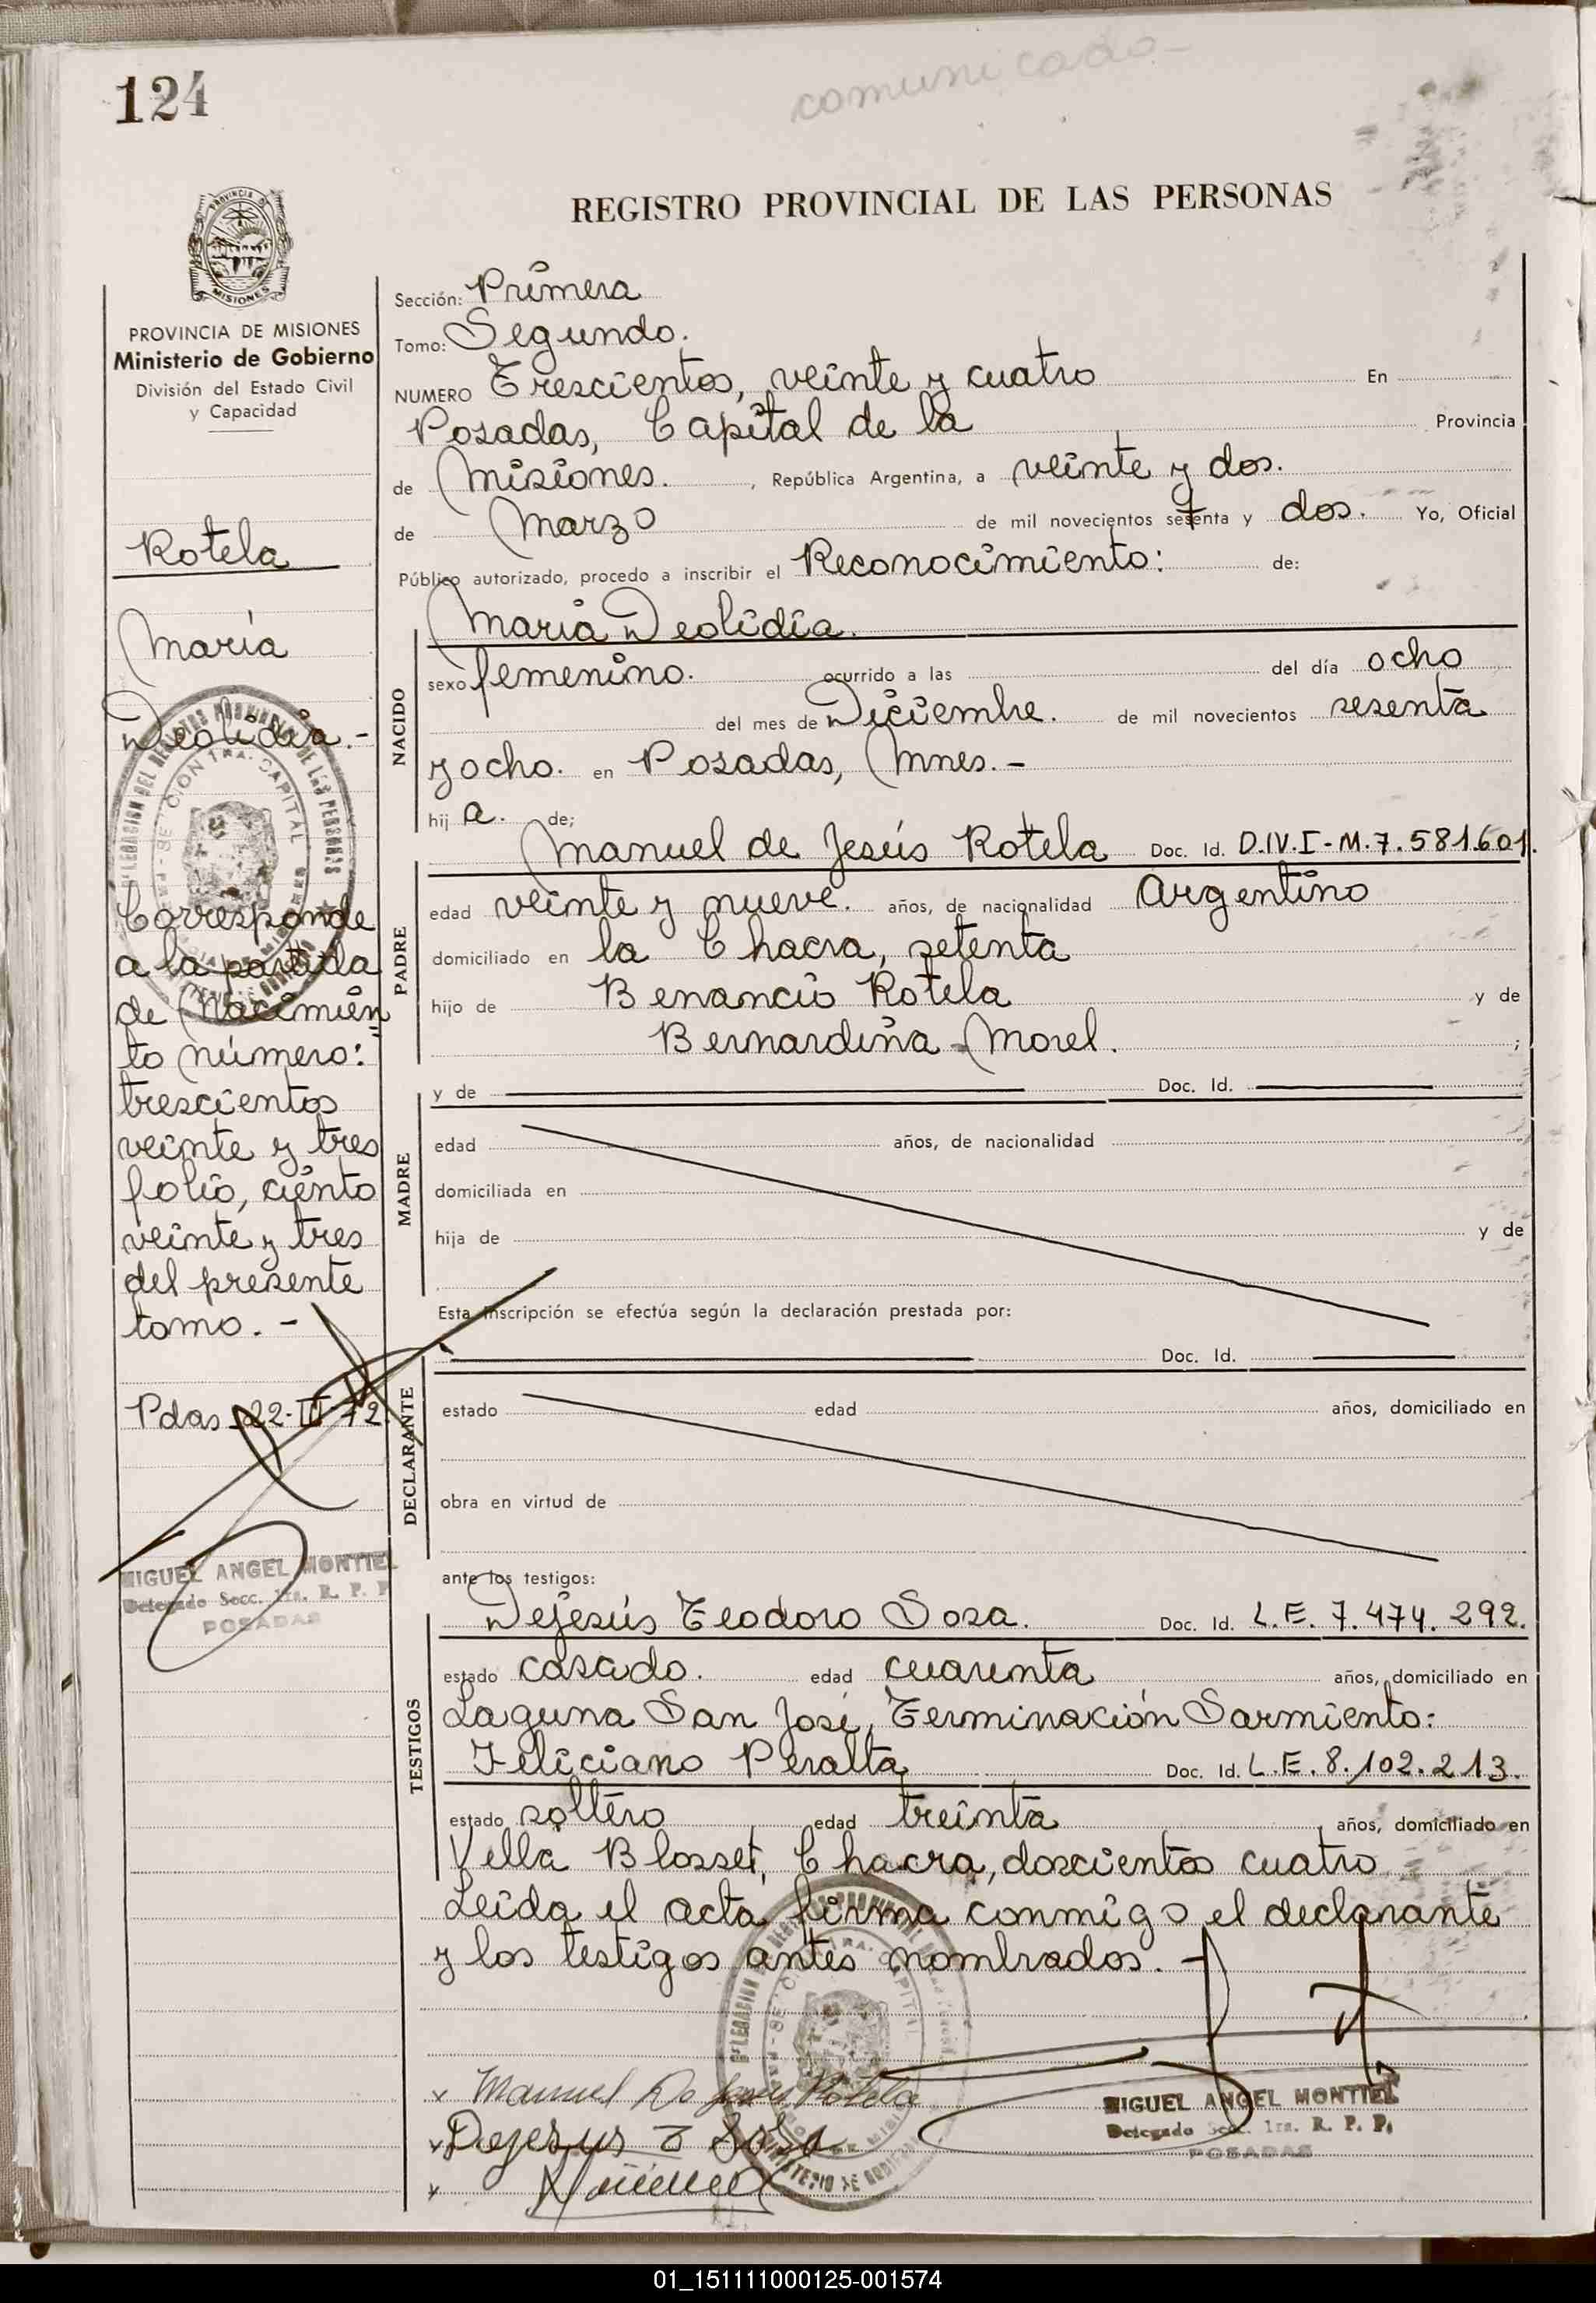 124
comunicado-
PROVINCIA
MISIONES
REGISTRO PROVINCIAL DE LAS PERSONAS
PROVINCIA DE MISIONES
Ministerio de Gobierno
División del Estado Civil
y Capacidad
Rotela
María
Deolidia.-
Corresponde
a la partida
de Nacimien
to número:
trescientos
veinte y tres
folio, ciento
veinte y tres
del presente
tomo. -
Pdas 22-III-72
MIGUEL ANGEL MONTIEL
Delegado Secc. 1ra. R. P. P.
POSADAS
Sección: Primera
Tomo: Segundo.
NUMERO Trescientos, veinte y cuatro En
Posadas, Capital de la Provincia
de Misiones. , República Argentina, a veinte y dos.
de Marzo de mil novecientos setenta y dos. Yo, Oficial
Público autorizado, procedo a inscribir el Reconocimiento: de:
María Deolidia.
NACIDO
sexo femenino. ocurrido a las del día ocho
del mes de Diciembre. de mil novecientos sesenta
y ocho. en Posadas, Mnes. -
hij a. de;
PADRE
Manuel de Jesús Rotela Doc. Id. D.IV.I-M.7.581.601.
edad veinte y nueve. años, de nacionalidad Argentino
domiciliado en la Chacra, setenta
hijo de Benancio Rotela y de
Bernardina Morel. ;
MADRE
y de Doc. Id.
edad años, de nacionalidad
domiciliada en
hija de y de
Esta inscripción se efectúa según la declaración prestada por:
DECLARANTE
Doc. Id.
estado edad años, domiciliado en
obra en virtud de
ante los testigos:
TESTIGOS
Dejesús Teodoro Sosa. Doc. Id. L.E. 7.474.292.
estado casado. edad cuarenta años, domiciliado en
Laguna San José, Terminación Sarmiento:
Feliciano Peralta Doc. Id. L.E. 8.102.213.
estado soltero edad treinta , años, domiciliado en
Villa Blosset, Chacra, doscientos cuatro
Leída el acta, firma conmigo el declarante
y los testigos antes nombrados. -
x Manuel De Jesus Rotela
x Dejesus T Sosa
x
MIGUEL ANGEL MONTIEL
Delegado Secc. 1ra. R. P. P.
POSADAS
01_151111000125-001574